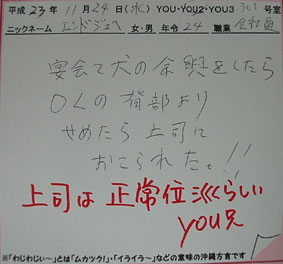 平成23年11月24日(水) YOU・YOU2・YOU3 301号室
ニックネーム エンドジェへ 女・男 年令24 職業 会社員
宴会で犬の余興をしたら
OLの背部より
せめたら上司に
おこられた。!!
上司は正常位ぐらしい
YOU兄
※「わじわじぃ〜」とは「ムカツク!」・「イライラ〜」などの意味の沖縄方言です